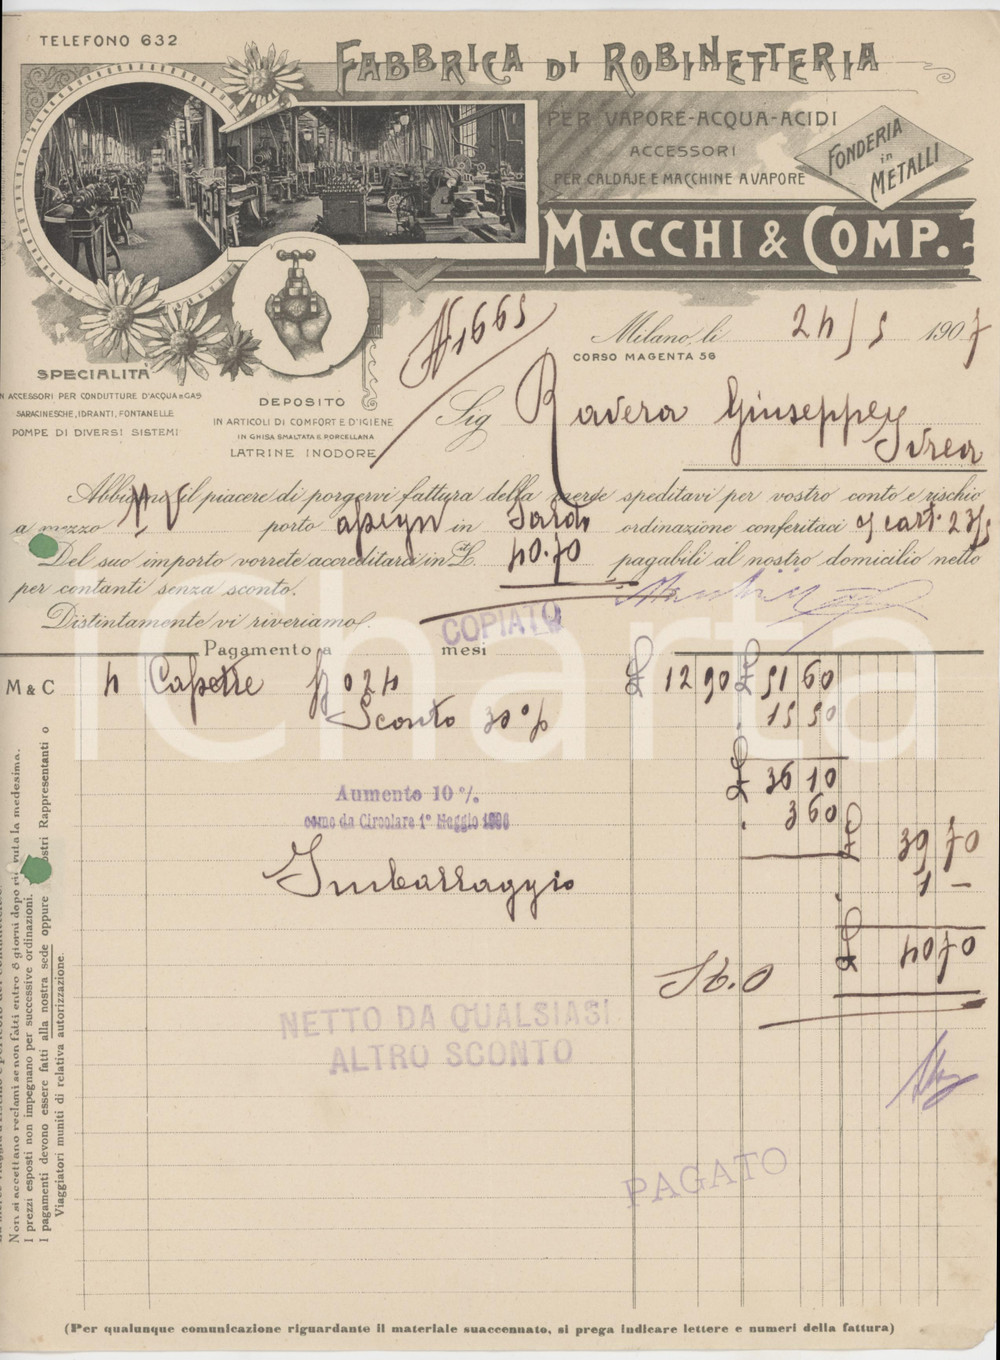 TELEFONO 632
FABBRICA DI ROBINETTERIA
PER VAPORE-ACQUA-ACIDI
ACCESSORI
PER CALDAJE E MACCHINE A VAPORE
FONDERIA
in
METALLI
MACCHI & COMP.
N 1665
Milano, li 24/5 1907
CORSO MAGENTA 56
SPECIALITÀ
IN ACCESSORI PER CONDUTTURE D'ACQUA E GAS
SARACINESCHE, IDRANTI, FONTANELLE
POMPE DI DIVERSI SISTEMI
DEPOSITO
IN ARTICOLI DI COMFORT E D'IGIENE
IN GHISA SMALTATA E PORCELLANA
LATRINE INODORE
Sig Ravera Giuseppe
Ivrea
Abbiamo il piacere di porgervi fattura della merce speditavi per vostro conto e rischio
a mezzo porto in ordinazione conferitaci cart. 23/5
Del suo importo vorrete accreditarci in L. 40.70 pagabili al nostro domicilio netto
per contanti senza sconto.
Distintamente vi riveriamo.
COPIATO
Pagamento a mesi
M & C 4 024 £ 12 90 £ 51 60
Sconto 30 % 15 50
£ 36 10
Aumento 10 %. 3 60
come da Circolare 1° Maggio 1906
£ 39 70
Imballaggio 1 —
£ 40 70
NETTO DA QUALSIASI
ALTRO SCONTO
PAGATO
Non si accettano reclami se non fatti entro 8 giorni dopo ricevuta la medesima.
I prezzi esposti non impegnano per successive ordinazioni.
I pagamenti devono essere fatti alla nostra sede oppure nostri Rappresentanti o
Viaggiatori muniti di relativa autorizzazione.
(Per qualunque comunicazione riguardante il materiale suaccennato, si prega indicare lettere e numeri della fattura)
iCharta